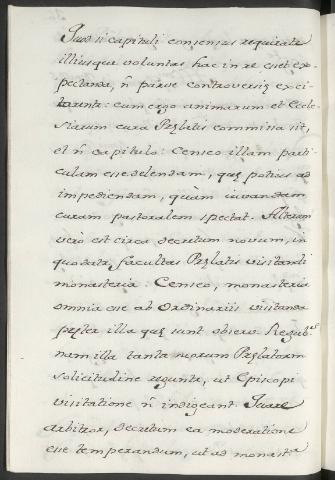 Quod si capituli consensus requiratr
illiusque voluntas hac in re esset ex-
pectanda, ñ parve controversiȩ exci-
tarentr: cum ergo animarum et Eccle-
siarum cura Prȩlatis commissa sit,
et ñ capitulo: Censeo illam parti-
culam esse delendam, quȩ potius ad
impediendam, quàm iuvandam
curam pastoralem spectat. Alterum
verò est circa decretum novum, in
quo datr facultas Prȩlatis visitandi
monasteria: Censeo, monasteria
omnia esse ab Ordinariis visitanda
prȩter illa quȩ sunt observ. Regulris
nam illa tanta suorum Prȩlatorum
solicitudine reguntr, ut Episcopi
visitatione ñ indigeant. Quare
arbitror, decretum ea moderatione
esse temperandum, ut ad monastra